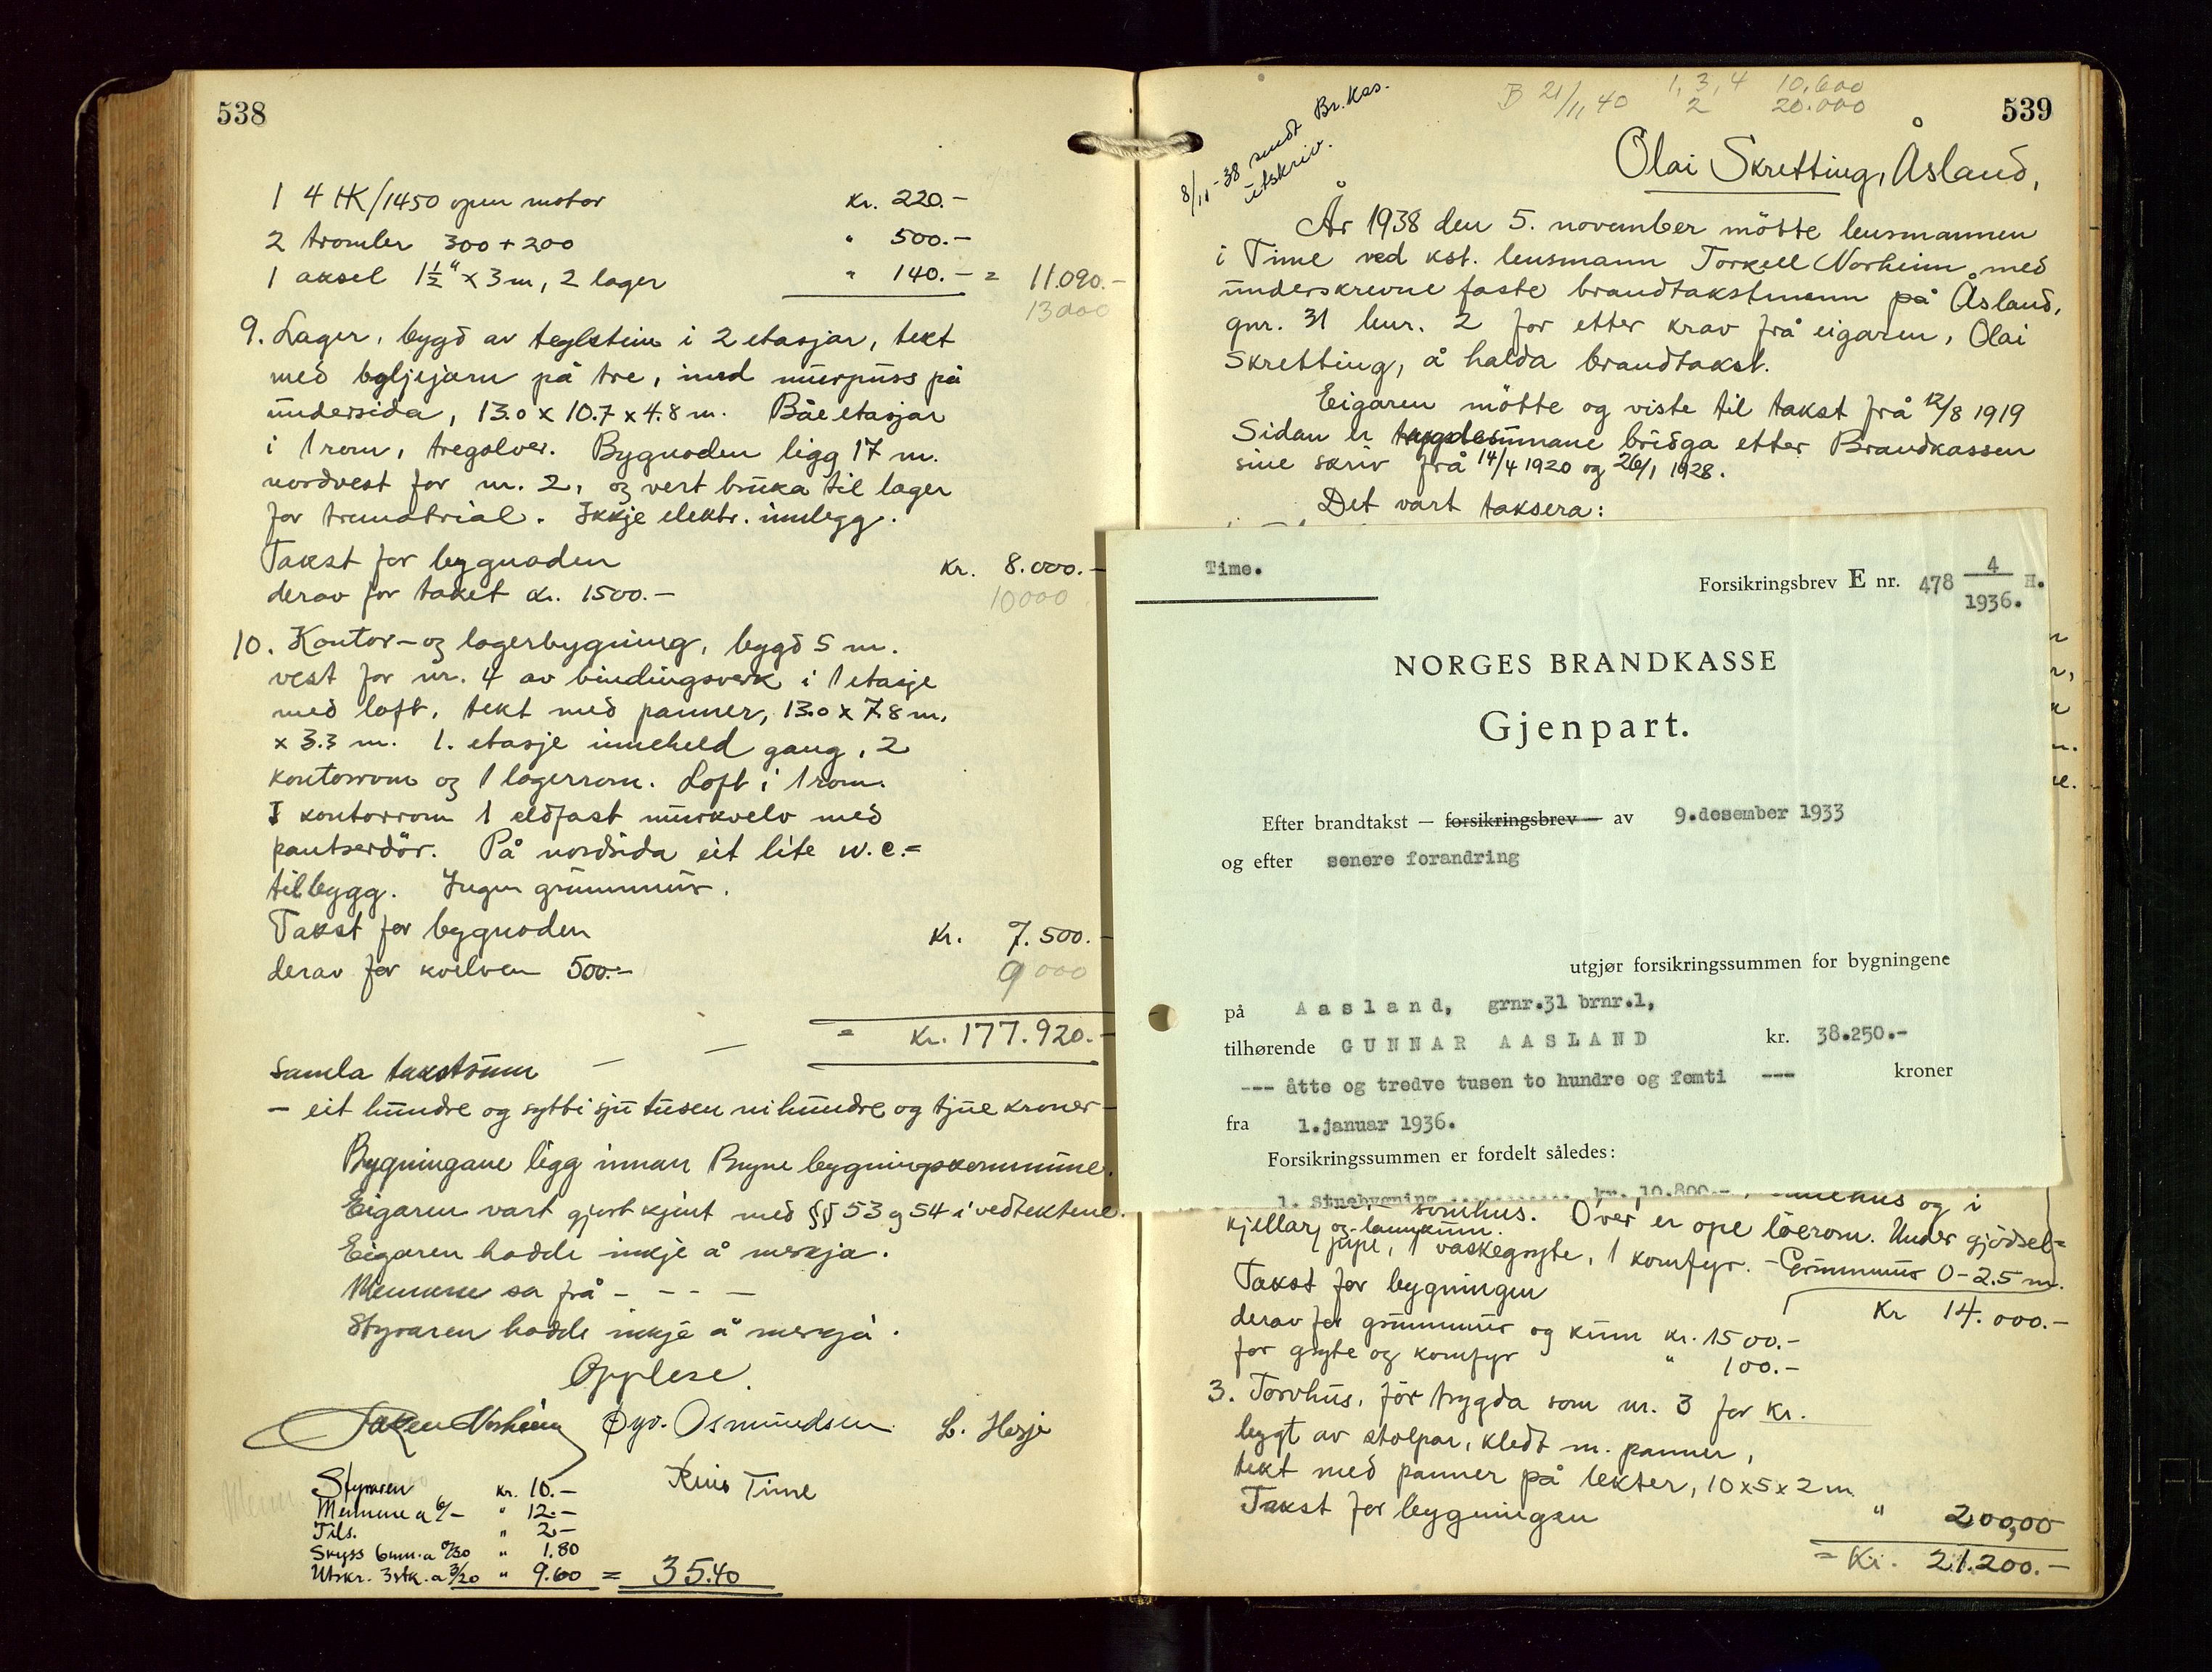 538
1 4 HK/1450 open motor kr. 220.-
2 tromler 300 + 200 " 500.-
1 aksel 1½" x 3 m, 2 lager " 140.- = 11.090.-
13000
9. Lager, bygd av teglstein i 2 etasjar, tekt
med bylgjejarn på tre, med murpuss på
undersida, 13.0 x 10.7 x 4.8 m. Båe etasjar
i 1 rom, tregolver. Bygnaden ligg 17 m.
nordvest for nr. 2, og vert bruka til lager
for trematrial. Ikkje elektr. innlegg.
Takst for bygnaden kr. 8.000.-
derav for taket kr. 1500.- 10000
10. Kontor- og lagerbygning, bygd 5 m.
vest for nr. 4 av bindingsverk i 1 etasje
med loft, tekt med panner, 13.0 x 7.8 m.
x 3.3 m. 1. etasje inneheld gang, 2
kontorrom og 1 lagerrom. Loft i 1 rom.
I kontorrom 1 eldfast murkvelv med
pantserdör. På nordsida eit lite w.c.=
tilbygg. Ingen grunnmur.
Takst for bygnaden kr. 7.500.-
derav for kvelven 500.- 9000
= Kr. 177.920.-
Samla takstsum
- eit hundre og sytti sju tusen ni hundre og tjue kroner -
Bygningane ligg innan Bryne bygningskommune.
Eigaren vart gjort kjent med §§ 53 og 54 i vedtektene.
Eigaren hadde inkje å merkja.
Mennene sa frå - - - -
Styraren hadde inkje å merkja.
Opplese.
Torkell Norheim Øyv. Osmundsen. L. Hesje
Time
Styraren kr. 10.-
Mennene a 6/- " 12.-
Tils. " 2.-
Skyss 6 mn. a 0/30 " 1.80
Utskr. 3 stk. a 3/20 " 9.60 = 35.40
539
B 21/11 40 1, 3, 4 10,600
2 20.000
8/11-38 sendt Br.kas.
utskriv.
Olai Skretting, Åsland,
År 1938 den 5. november mötte lensmannen
i Time ved kst. lensmann Torkell Norheim med
underskrevne faste brandtakstmenn på Åsland,
gnr. 31 bnr. 2 for etter krav frå eigaren, Olai
Skretting, å halda brandtakst.
Eigaren mötte og viste til takst frå 12/8 1919
Sidan er trygdesumane brigda etter Brandkassen
sine skriv frå 14/4 1920 og 26/1 1928.
Det vart taksera:
Time.
Forsikringsbrev E nr. 478 4/1936. H.
NORGES BRANDKASSE
Gjenpart.
Efter brandtakst — forsikringsbrev — av 9.desember 1933
og efter senere forandring
utgjør forsikringssummen for bygningene
på Aasland, grnr.31 brnr.1,
tilhørende GUNNAR AASLAND kr. 38.250.-
--- åtte og tredve tusen to hundre og femti --- kroner
fra 1.januar 1936.
Forsikringssummen er fordelt således:
1. Stuebygning .......... kr. 10.800.-
og i
Over er ope löerom. Under gjödsel=
kjellar og landkum.
1 vaskegryte, 1 komfyr. - Grunnmur 0-2.5 m.
Takst for bygningen Kr 14.000.-
derav for grunnmur og kum kr. 1500.-
for gryte og komfyr " 100.-
3. Torvhus, för trygda som nr. 3 for kr.
bygt av stolpar, kledt m. panner,
tekt med panner på lekter, 10 x 5 x 2 m
Takst for bygningen " 200,00
= Kr. 21.200.-